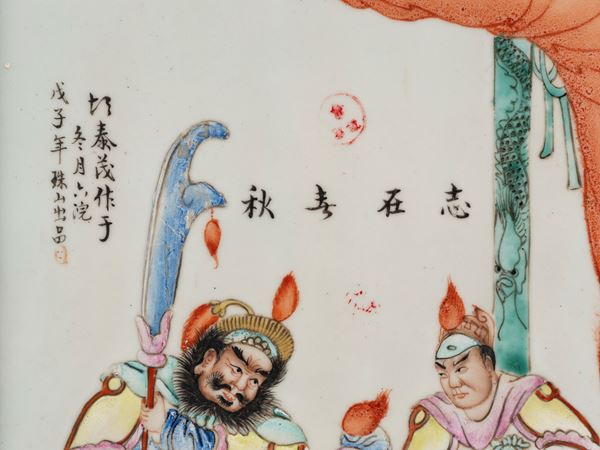 志在春秋
泰茂作于
冬月六浣
戊子年珠山出品